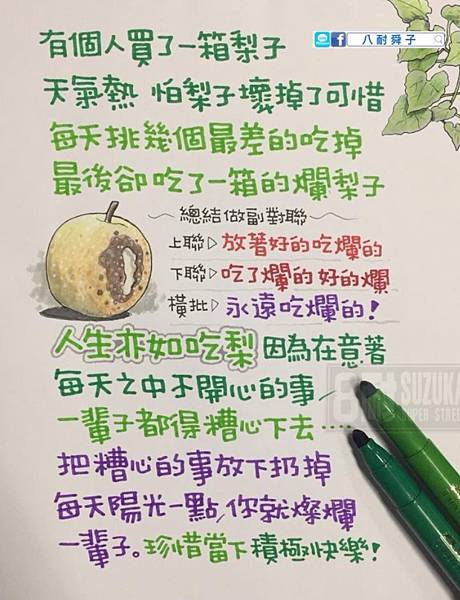 八耐舜子
有個人買了一箱梨子
天氣熱 怕梨子壞掉了可惜
每天挑幾個最差的吃掉
最後卻吃了一箱的爛梨子
～總結做副對聯～
上聯▷放著好的吃爛的
下聯▷吃了爛的好的爛
橫批▷永遠吃爛的!
人生亦如吃梨 因為在意著
每天之中不開心的事，
一輩子都得糟心下去……
把糟心的事放下扔掉
每天陽光一點，你就燦爛
一輩子。珍惜當下積極快樂!
SUZUKA
SUPER STREE